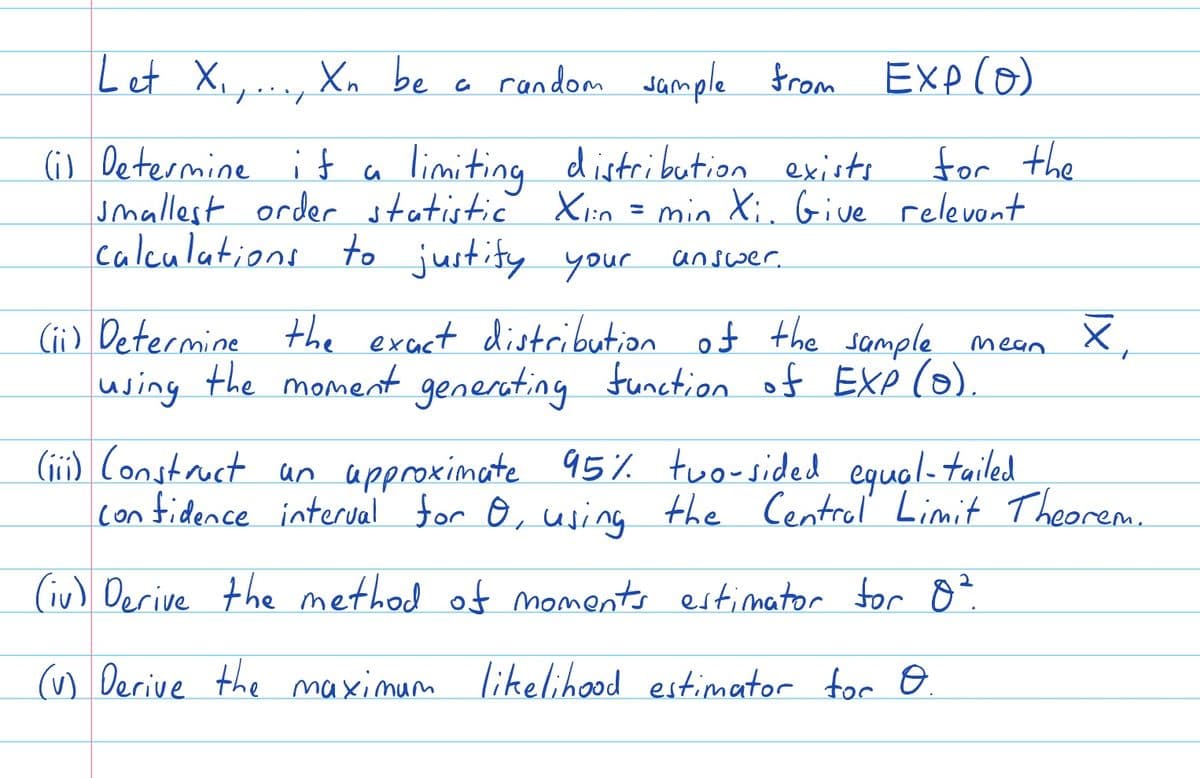 Let X₁,..., Xn be a random sample from EXP(θ)
(i) Determine if a limiting distribution exists for the
smallest order statistic X1:n = min Xi. Give relevant
calculations to justify your answer.
(ii) Determine the exact distribution of the sample mean X̄,
using the moment generating function of EXP(θ).
(iii) Construct an approximate 95% two-sided equal-tailed
confidence interval for θ, using the Central Limit Theorem.
(iv) Derive the method of moments estimator for θ².
(v) Derive the maximum likelihood estimator for θ.